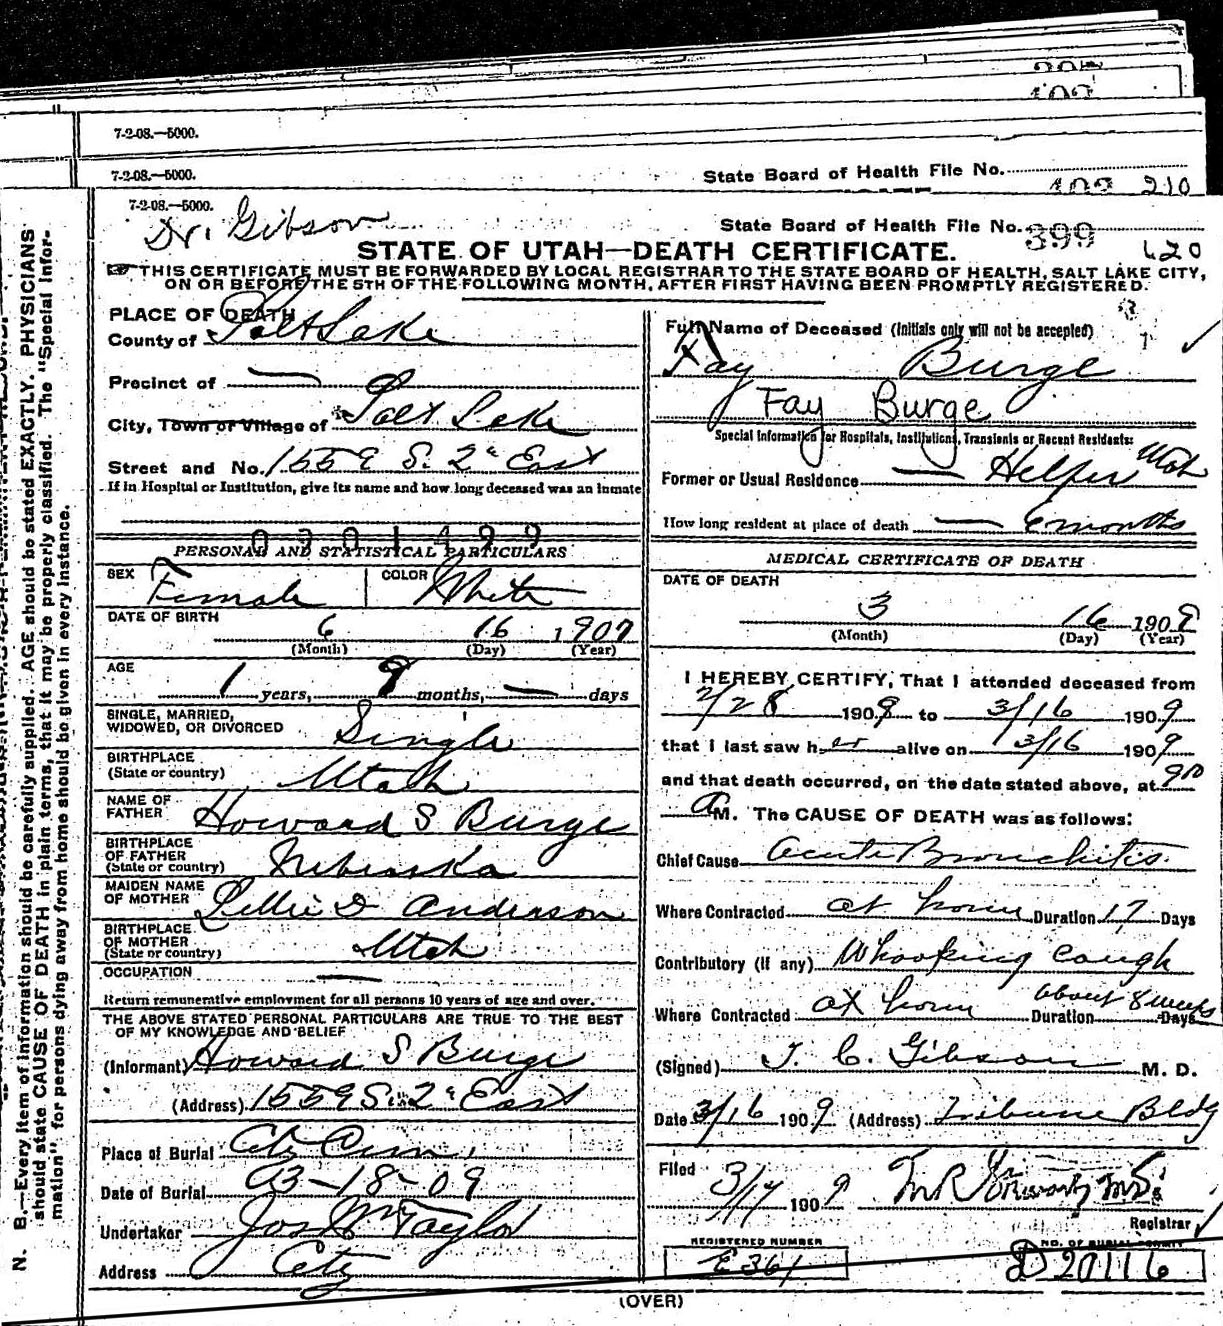 7-2-08.—5000.
7-2-08.—5000.
State Board of Health File No.
210
7-2-08.—5000.
Dr. Gibson
State Board of Health File No. 399
620
STATE OF UTAH—DEATH CERTIFICATE.
THIS CERTIFICATE MUST BE FORWARDED BY LOCAL REGISTRAR TO THE STATE BOARD OF HEALTH, SALT LAKE CITY,
ON OR BEFORE THE 5TH OF THE FOLLOWING MONTH, AFTER FIRST HAVING BEEN PROMPTLY REGISTERED.
PLACE OF DEATH
County of Salt Lake
Precinct of —
City, Town or Village of Salt Lake
Street and No. 1559 S. 2d East
If in Hospital or Institution, give its name and how long deceased was an inmate
0301499
PERSONAL AND STATISTICAL PARTICULARS
SEX Female COLOR White
DATE OF BIRTH
6 16 1907
(Month) (Day) (Year)
AGE
1 years, 9 months, — days
SINGLE, MARRIED,
WIDOWED, OR DIVORCED Single
BIRTHPLACE
(State or country) Utah
NAME OF
FATHER Howard S Burge
BIRTHPLACE
OF FATHER
(State or country) Nebraska
MAIDEN NAME
OF MOTHER Lillie D Anderson
BIRTHPLACE
OF MOTHER
(State or country) Utah
OCCUPATION —
Return remunerative employment for all persons 10 years of age and over.
THE ABOVE STATED PERSONAL PARTICULARS ARE TRUE TO THE BEST
OF MY KNOWLEDGE AND BELIEF
(Informant) Howard S Burge
(Address) 1559 S. 2d East
Place of Burial City Cem.
Date of Burial 03-18-09
Undertaker Jos Wm Taylor
Address City
Full Name of Deceased (Initials only will not be accepted)
Fay Burge
Fay Burge
Special Information for Hospitals, Institutions, Transients or Recent Residents:
Former or Usual Residence — Helper Utah
How long resident at place of death — 2 months
MEDICAL CERTIFICATE OF DEATH
DATE OF DEATH
3 16 1909
(Month) (Day) (Year)
I HEREBY CERTIFY, That I attended deceased from
2/28 1909 to 3/16 1909
that I last saw her alive on 3/16 1909
and that death occurred, on the date stated above, at 900
A M. The CAUSE OF DEATH was as follows:
Chief Cause Acute Bronchitis.
Where Contracted at home Duration 17 Days
Contributory (if any) Whooping Cough
Where Contracted at home Duration about 8 weeks Days
(Signed) T. C. Gibson M. D.
Date 3/16 1909 (Address) Tribune Bldg
Filed 3/17 1909 M.D.
Registrar
REGISTERED NUMBER
E361
NO. OF BURIAL PERMIT
D 20116
(OVER)
N. B.—Every item of information should be carefully supplied. AGE should be stated EXACTLY. PHYSICIANS
should state CAUSE OF DEATH in plain terms, that it may be properly classified. The "Special Infor-
mation" for persons dying away from home should be given in every instance.